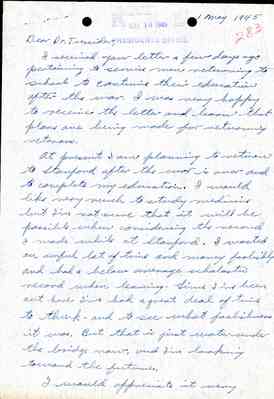 1 May 1945
283
PRESIDENTS OFFICE
Dear Dr. Tresidder,
I received your letter a few days ago
pertaining to service men returning to
school to continue their education
after the war. I was very happy
to receive the letter and learn that
plans are being made for returning
veterans.
At present I am planning to return
to Stanford after the war is over and
to complete my education. I would
like very much to study medicine
but I'm not sure that it will be
possible when considering the record
I made while at Stanford. I wasted
an awful lot of time and money foolishly
and had a below average scholastic
record when leaving. Since I've been
out here I've had a great deal of time
to think - and to see what foolishness
it was. But that is just water under
the bridge now, and I'm looking
toward the future.
I would appreciate it very